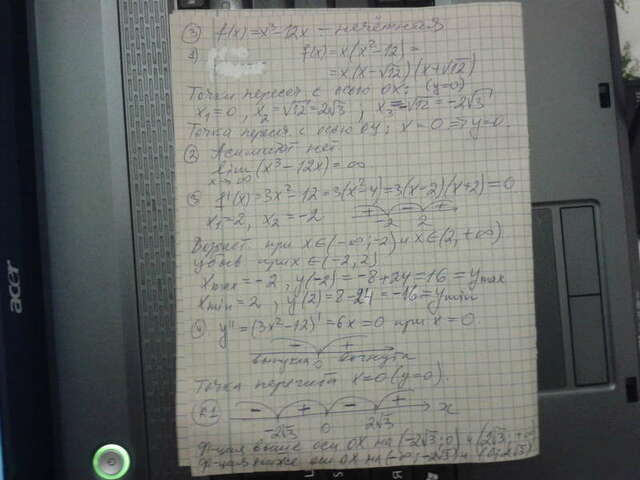 ③ f(x)=x³-12x - нечётная
1) f(x)=x(x²-12)=
=x(x-√12)(x+√12)
Точки пересеч с осью OX: (y=0)
x₁=0, x₂=√12=2√3; x₃=-√12=-2√3
Точка пересеч с осью OY: x=0 ⇒ y=0.
② Асимптот нет
lim (x³-12x)=∞
x→∞
③ f'(x)=3x²-12=3(x²-4)=3(x-2)(x+2)=0
x₁=2, x₂=-2 + - +
-2 2
Возраст при x∈(-∞,-2) и x∈(2,+∞)
убыв при x∈(-2,2)
xmax=-2, y(-2)=-8+24=16=ymax
xmin=2, y(2)=8-24=-16=ymin
④ y''=(3x²-12)'=6x=0 при x=0
- +
выпукла 0 вогнута
Точка перегиба x=0 (y=0).
- + - + x
-2√3 0 2√3
Ф-ция выше оси OX на (-2√3;0) и (2√3;+∞)
Ф-ция ниже оси OX на (-∞;-2√3) и (0;2√3)
acer